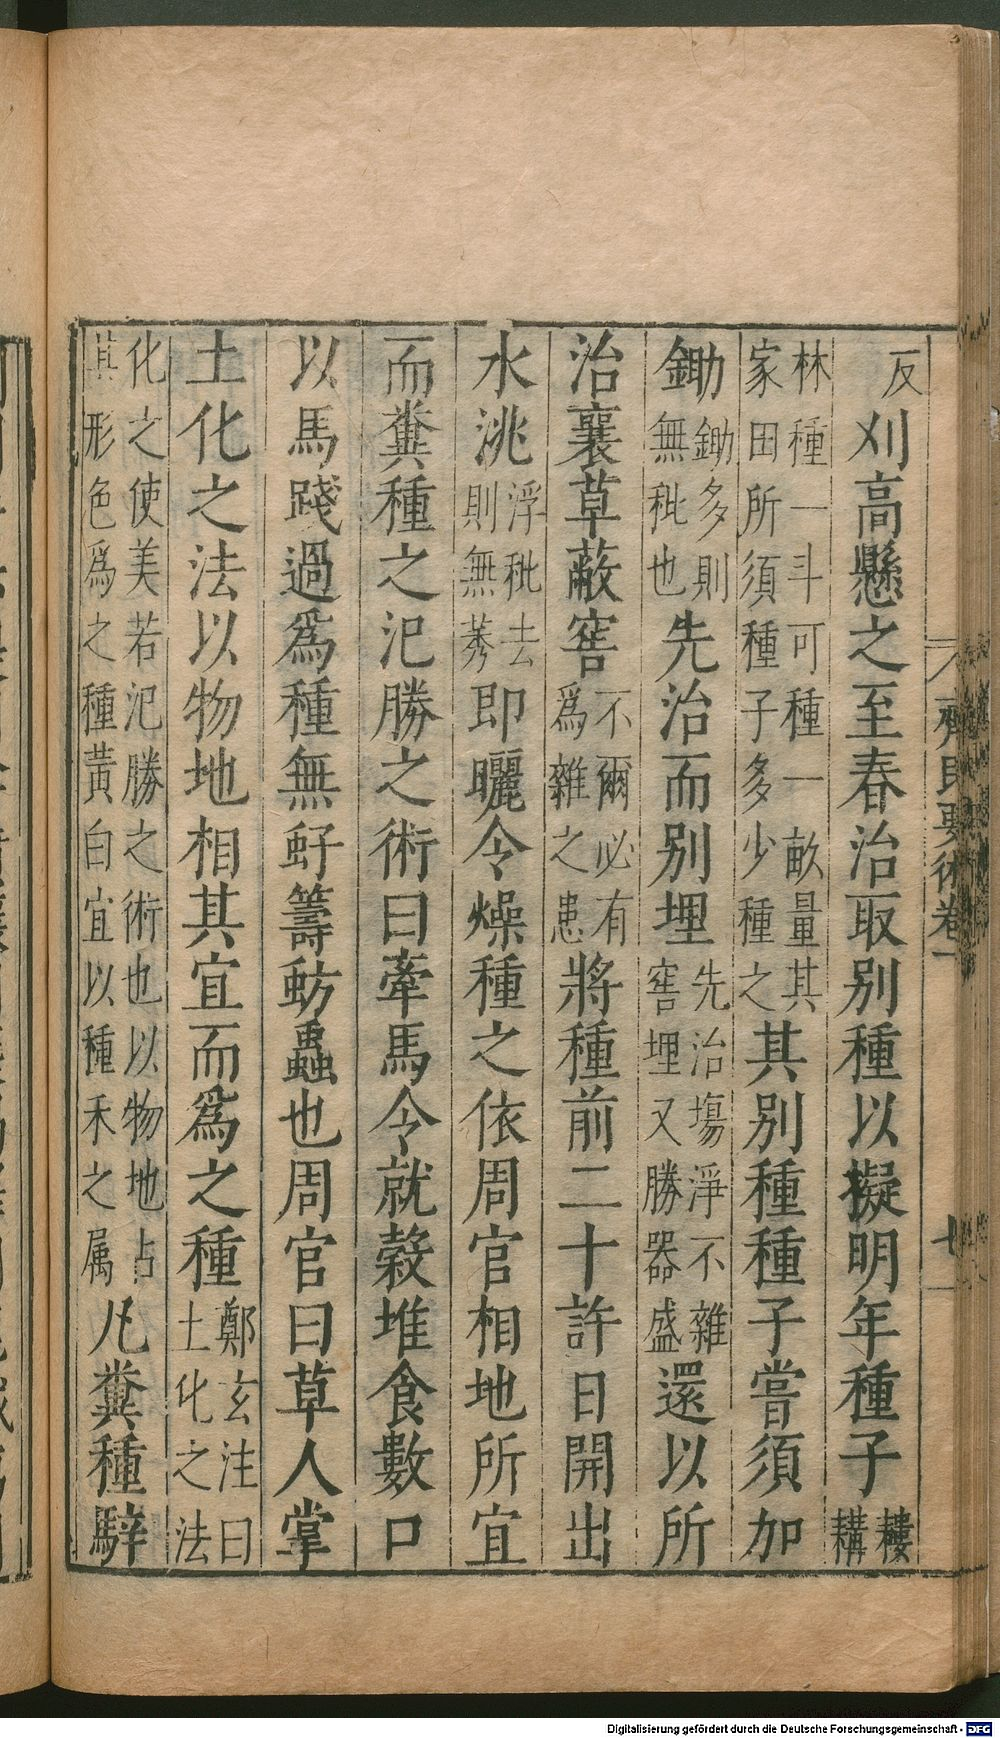 反刈高懸之至春治取別種以擬明年種子耬耩
林種一斗可種一畝量其家田所須種子多少種之其別種種子嘗須加
鋤鋤多則無秕也先治而別埋先治塲淨不雜窖埋又勝器盛還以所
治蘘草蔽窖不爾必有爲雜之患將種前二十許日開出
水洮浮秕去則無莠即曬令燥種之依周官相地所宜
而糞種之氾勝之術曰牽馬令就穀堆食數口
以馬踐過爲種無虸籌蚄蟲也周官曰草人掌
土化之法以物地相其宜而爲之種鄭玄注曰土化之法
化之使美若氾勝之術也以物地占其形色爲之種黃白宜以種禾之属凡糞種騂
齊民要術卷一
七
Digitalisierung gefördert durch die Deutsche Forschungsgemeinschaft - DFG